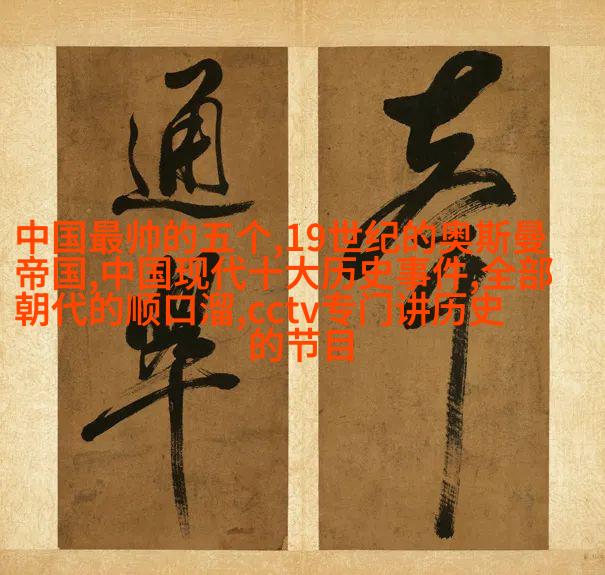 通
中国最帅的五个,19世纪的奥斯曼
帝国,中国现代十大历史事件,全部
朝代的顺口溜,cctv专门讲历史
的节目